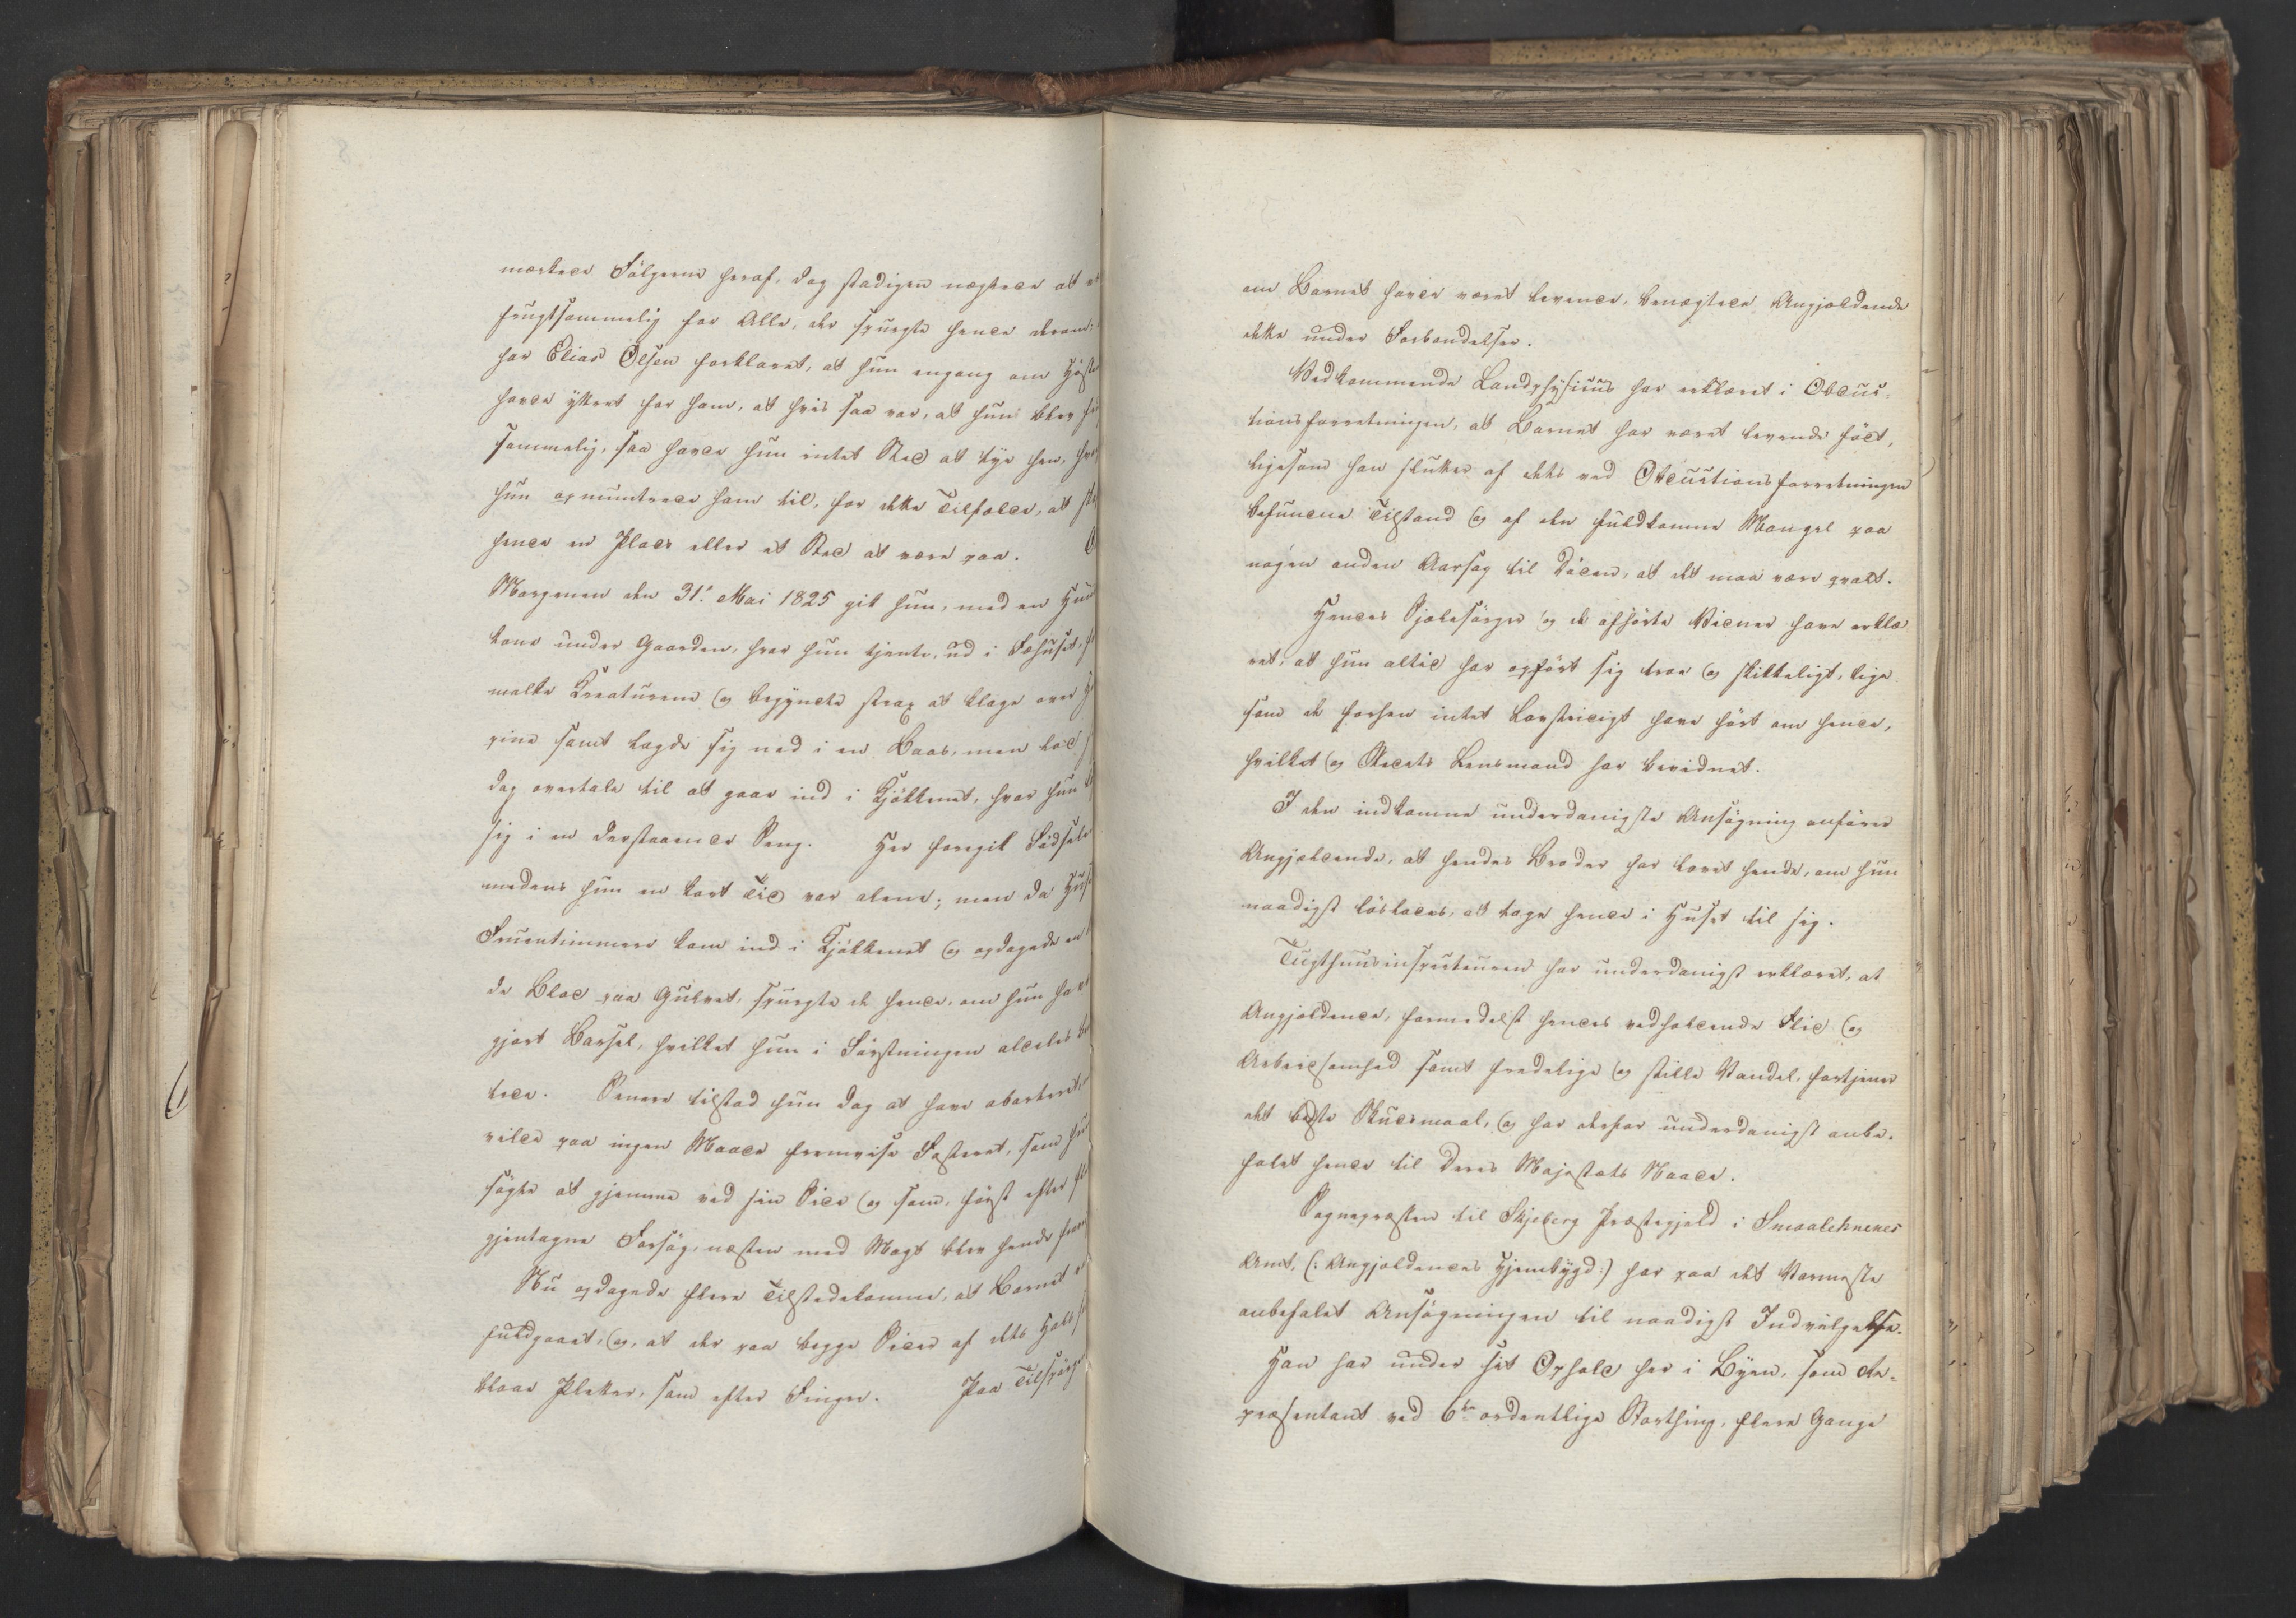 mærkede Fölgerne heraf, dog stadigen nægtede at
frugtsommelig for Alle, der spurgte hende derom;
har Elias Olsen forklaret, at hun engang om Höste
havde yttret for ham, at hvis saa var, at hun blev
sommelig, saa havde hun intet Sted at tye hen,
hun opmuntrede ham til, for dette Tilfælde, at
hende en Plads eller et Sted at være paa.
Morgenen den 31te Mai 1825 gik hun, med en
kone under Gaarden, hvor hun tjente, ud i Fæhuset,
malke Kreaturene og begyndte strax at klage over
pine samt lagde sig ned i en Baas, men lod
dog overtale til at gaae ind i Kjökkenet, hvor hun
sig i en derstaaende Seng. Her foregik Födsele
medens hun en kort Tid var alene; men da
Fruentimmere kom ind i Kjökkenet og opdagede en
de Blod paa Gulvet, spurgte de hende, om hun
gjort Barsel, hvilket hun i Förstningen aldeles
tede. Senere tilstod hun dog at have aborteret,
vilde paa ingen Maade fremvise Fosteret, som
sögte at gjemme ved sin Side og som, först efter
gjentagne Forsög, næsten med Magt blev hende
Nu opdagede flere Tilstedekomne, at Barnet
fuldgaaet, og, at der paa begge Sider af dets
blaae Pletter, som efter Fingre. Paa Tilspörg
om Barnet havde været levende, benægtede Angjældende
dette under Forbandelser.
Vedkommende Landphysicus har erklæret i Obduc-
tionsforretningen, at Barnet har været levende född,
ligesom han slutter af dets ved Obductionsforretningen
befundne Tilstand og af den fuldkomne Mangel paa
nogen anden Aarsag til Döden, at det maa være qvalt.
Hendes Sjælesörger og de afhörte Vidner have erklæ
ret, at hun altid har opfört sig troe og skikkeligt, lige
som de forhen intet Lovstridigt have hört om hende,
hvilket og Stedets Lensmand har bevidnet.
I den indkomne underdanigste Ansögning anförer
Angjældende, at hendes Broder har lovet hende, om hun
naadigst löslades, at tage hende i Huset til sig.
Tugthuusinspecteuren har underdanigst erklæret, at
Angjældende, formedelst hendes vedholdende Flid og
Arbeidsomhed samt fredelige og stille Vandel, fortjener
det bedste Skudsmaal, og har derfor underdanigst anbe-
falet hende til Deres Majestæts Naade.
Sognepræsten til Skjeberg Præstegjeld i Smaalehnenes
Amt, (: Angjældendes Hjembygd :) har paa det Varmeste
anbefalet Ansögningen til naadigst Indvilgelse.
Han har under sit Ophold her i Byen, som Re-
præsentant ved 6te ordentlige Storthing, flere Gange